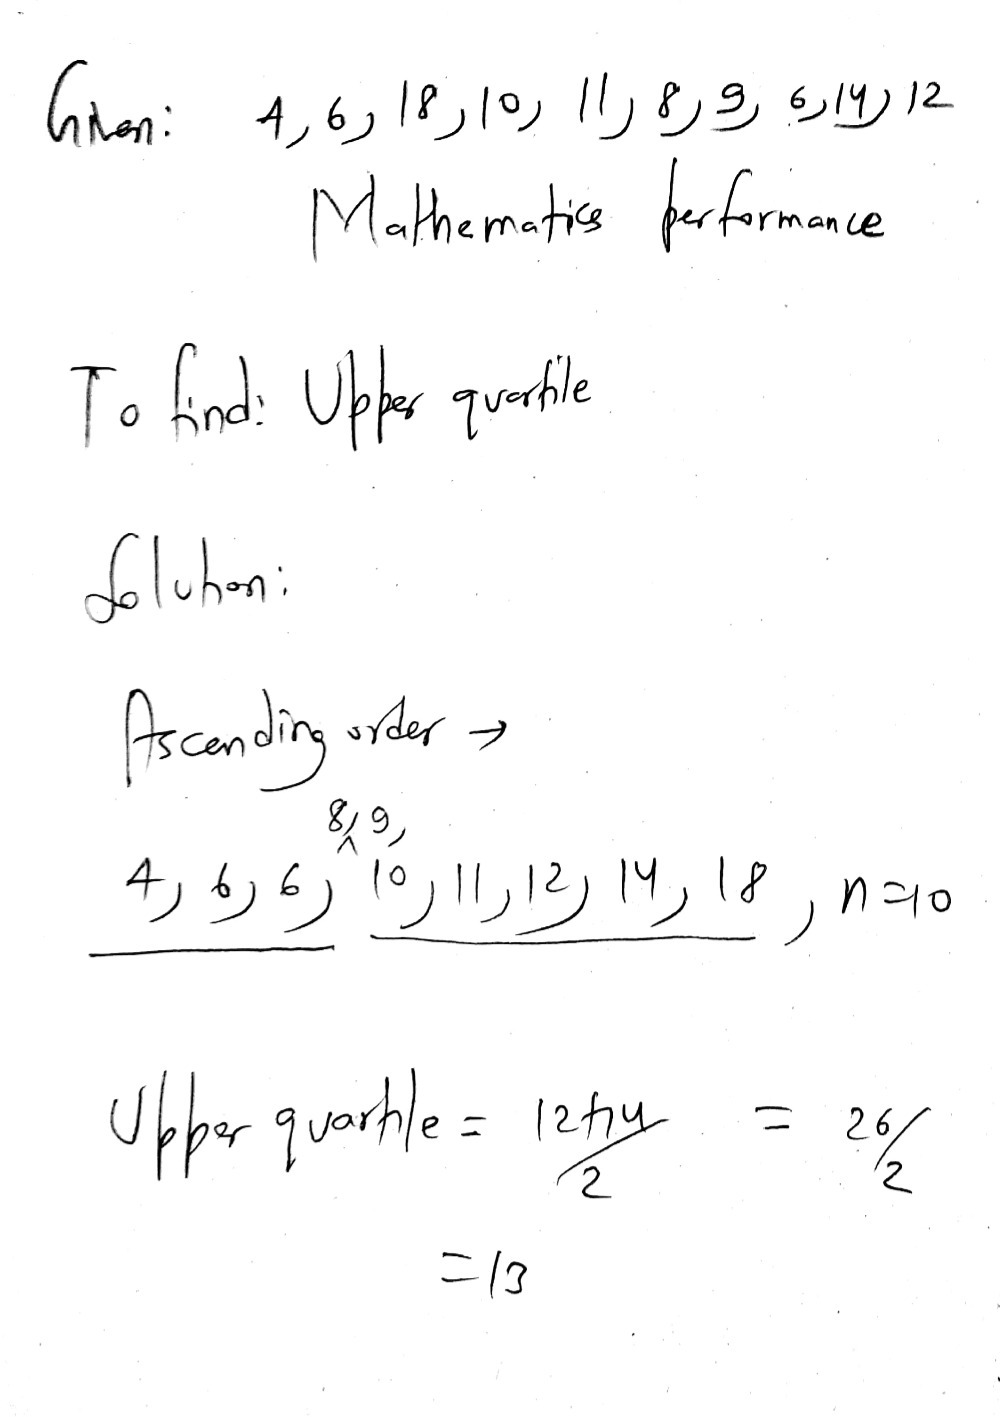 Given: 4, 6, 18, 10, 11, 8, 9, 6, 14, 12
Mathematics performance
To find: Upper quartile
Solution:
Ascending order →
8, 9,
4, 6, 6, ^ 10, 11, 12, 14, 18, n=10
Upper quartile = 12+14/2 = 26/2
=13